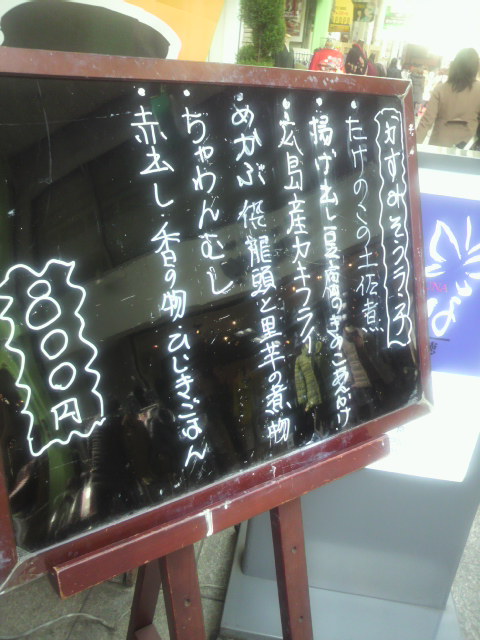 かすみそうランチ
・たけのこの土佐煮
・揚げ出し豆腐のきのこあんかけ
・広島産カキフライ
・めかぶ飛龍頭と里芋の煮物
・ちゃわんむし
・赤出し・香の物・ひじきごはん
800円